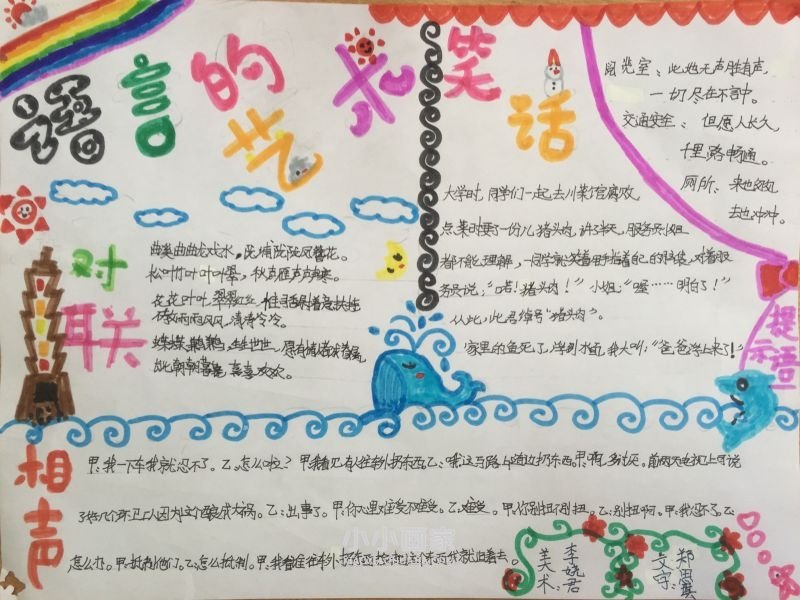 语言的艺术
笑话
阅览室、此地无声胜有声,
一切尽在不言中。
交通安全、但愿人长久,
十里路畅通。
厕所、来也匆匆
去也冲冲。
提示语
大学时,同学们一起去川菜馆腐败,
点菜时要了一份儿猪头肉,许久,服务员小姐
都不能理解,一同学就笑着用手指着自己的脑袋,对着服
务员说:“喏!猪头肉!”小姐:“喔……明白了!”
从此,此君绰号“猪头肉”。
家里的鱼死了,浮到水面,我大叫:“爸爸浮上来了!”
对联
曲溪曲曲龙戏水,陇埔陇陇凤簪花。
松叶竹叶叶叶翠,秋声雁声声声寒。
花花叶叶,翠翠红红
雨雨风风,清清冷冷。
生生世世
朝朝暮暮,喜喜欢欢。
相声
甲:我一下车我就忍不了。乙:怎么啦?甲:我看见有人往车外扔东西。乙:哦,这马路上随便扔东西。甲:啊,多讨厌。前两天电视上可说
了好几个环卫工人因为这个酿成大祸。乙:出事了。甲:你心里难受不难受。乙:难受。甲:你别扭不别扭。乙:别扭啊。甲:我忍不了。乙:
怎么办。甲:抵制他们。乙:怎么抵制。甲:我看谁往车外扔东西
小小画家
美术:李娆君
文字:郑思